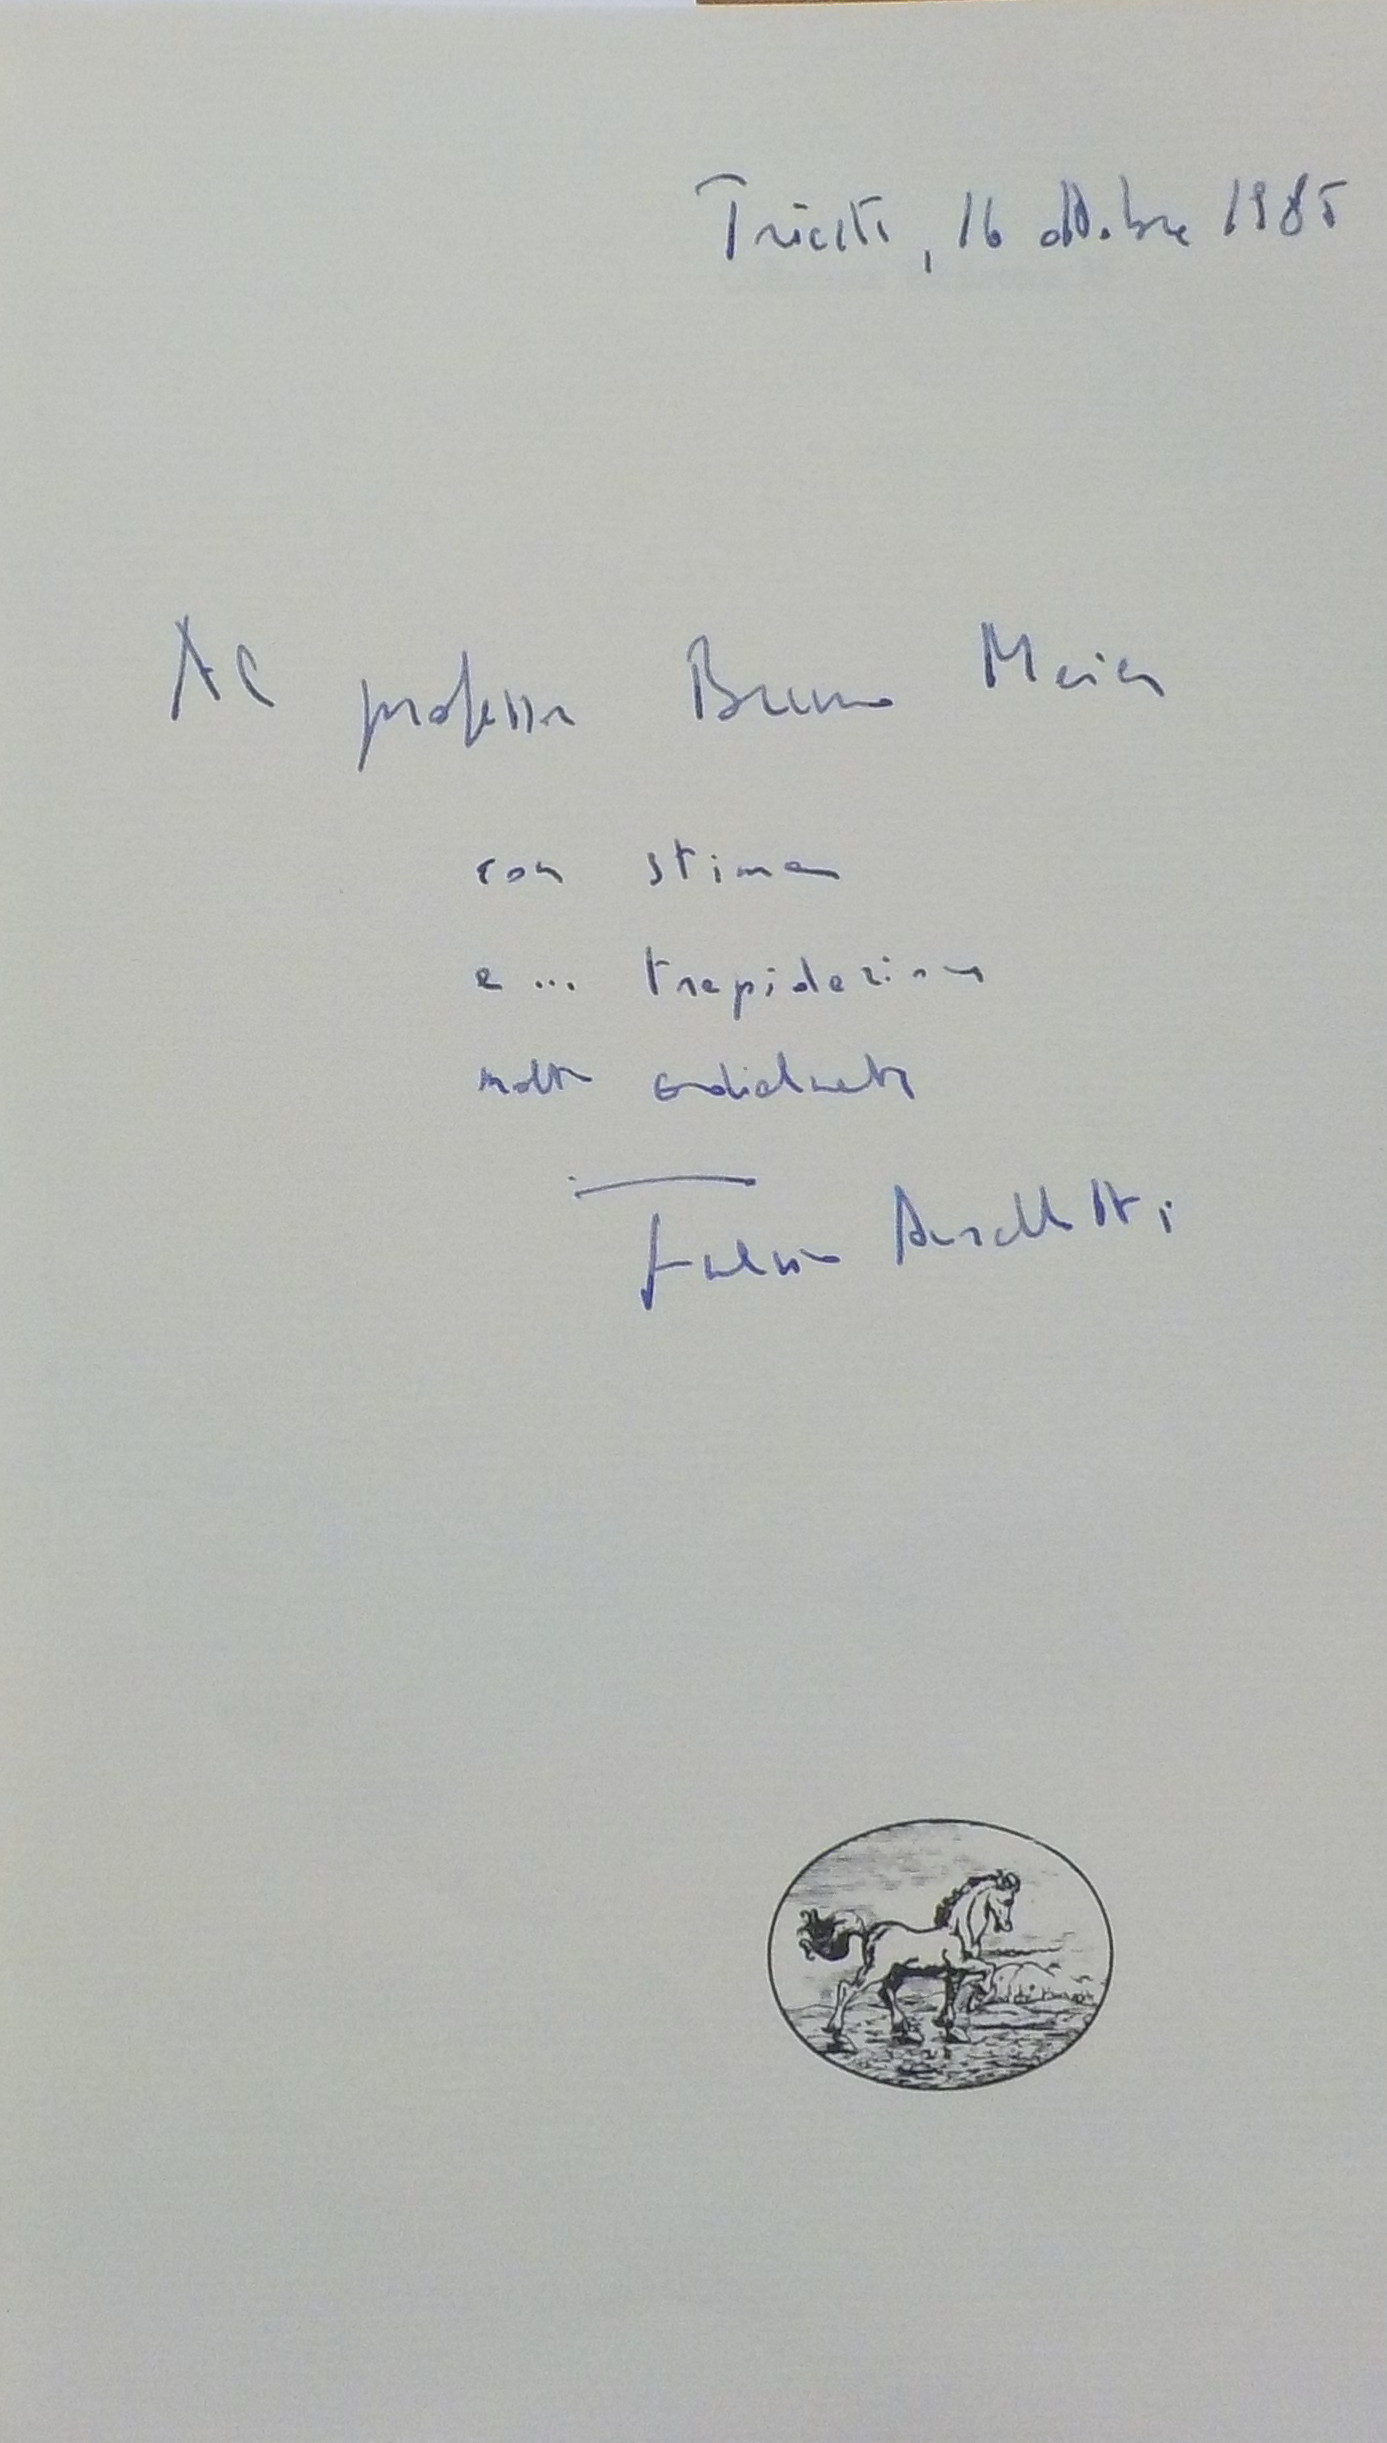 Trieste, 16 ottobre 1985
Al professor Bruno Maier
con stima
e ... trepidazione
molto cordialmente
Fulvio